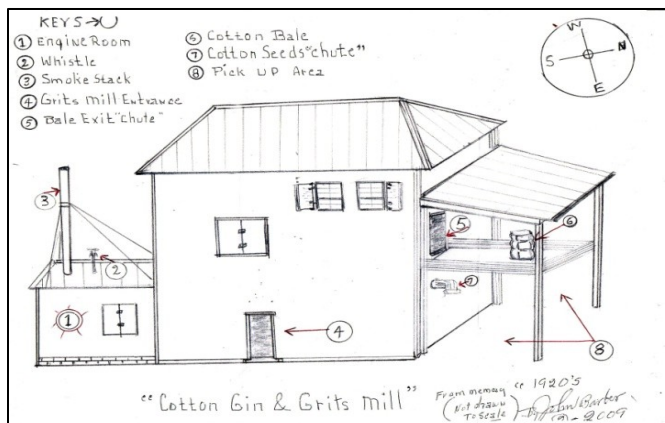 KEYS
① Engine Room
② Whistle
③ Smoke Stack
④ Grits Mill Entrance
⑤ Bale Exit "Chute"
⑥ Cotton Bale
⑦ Cotton Seeds "Chute"
⑧ Pick UP Area
W
N
S
E
③
②
①
④
⑤
⑥
⑦
⑧
"Cotton Gin & Grits Mill"
From memory
(Not drawn
To Scale)
"1920's
John Barber
2009